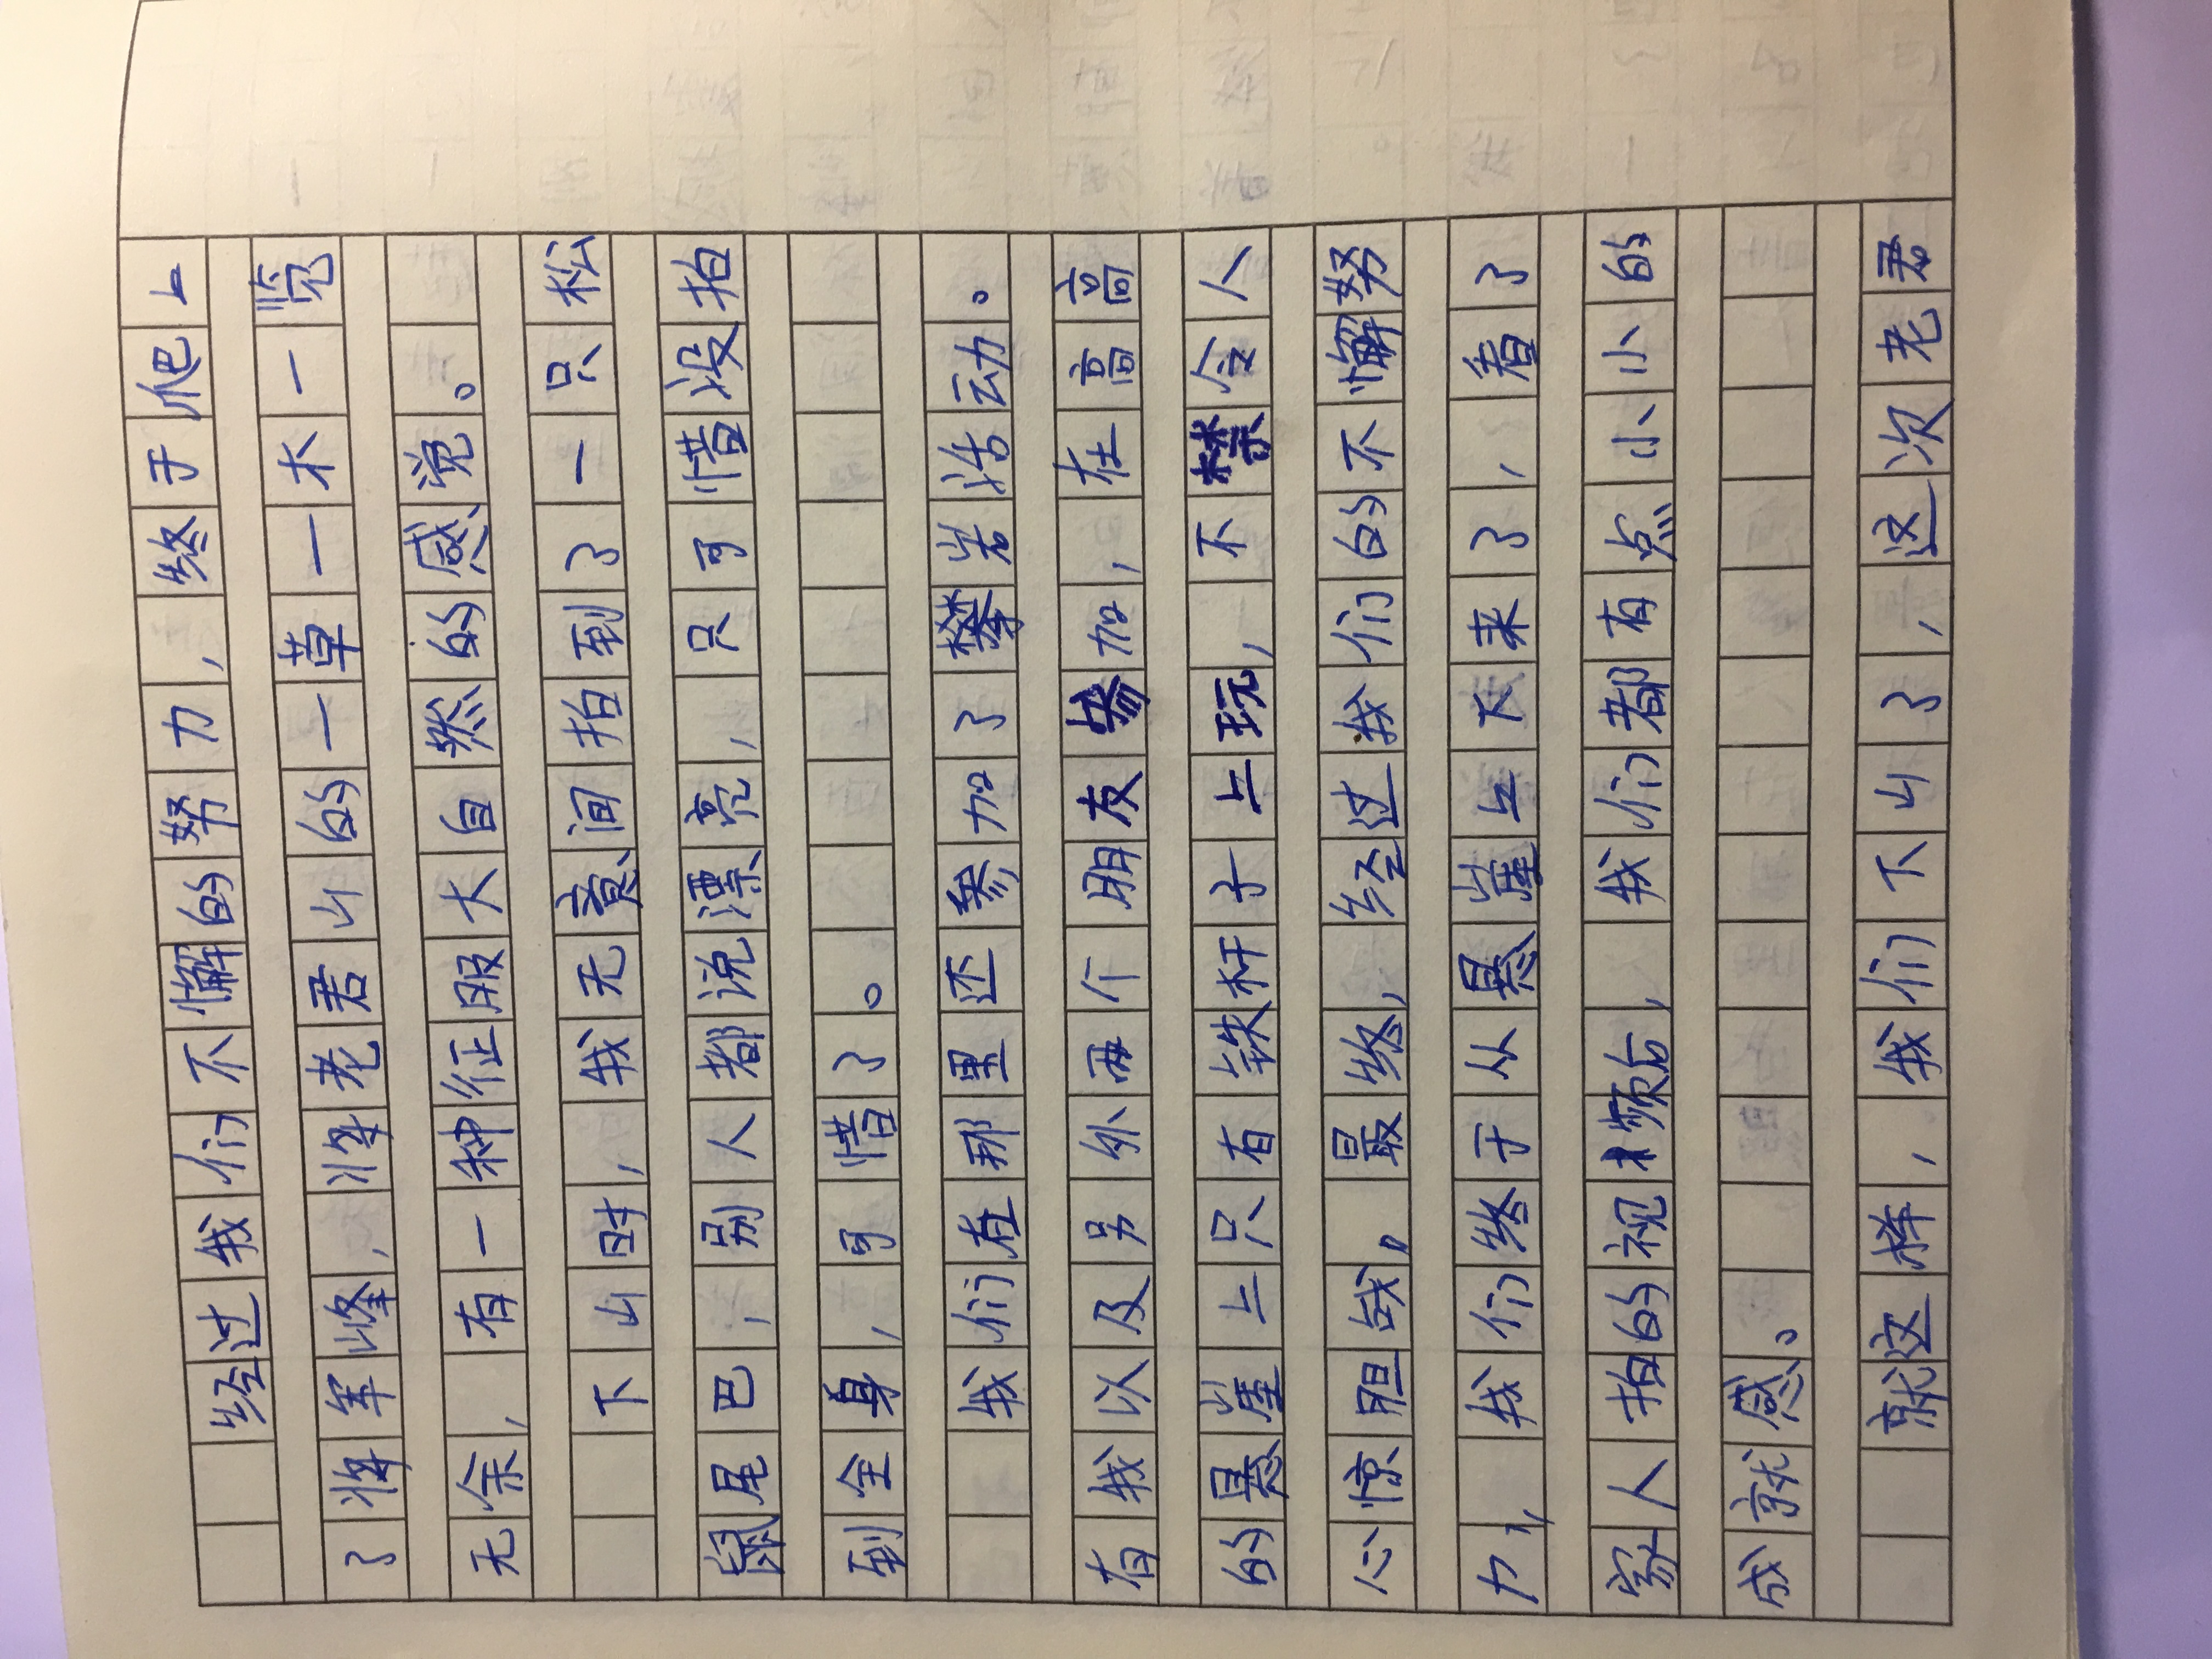 经过我们不懈的努力，终于爬上
了将军峰，将老君山的一草一木一览
无余，有一种征服大自然的感觉。
下山时，我无意间拍到了一只松
鼠尾巴，别人都说漂亮，只可惜没拍
到全身，可惜了。
我们在那里还参加了攀岩活动。
有我以及另外两个朋友参加，在高高
的悬崖上只有铁杆子上玩，不禁令人
心惊胆战。最终，经过我们的不懈努
力，我们终于从悬崖上下来了，看了
家人拍的视频后，我们都有点小小的
成就感。
就这样，我们下山了，这次老君